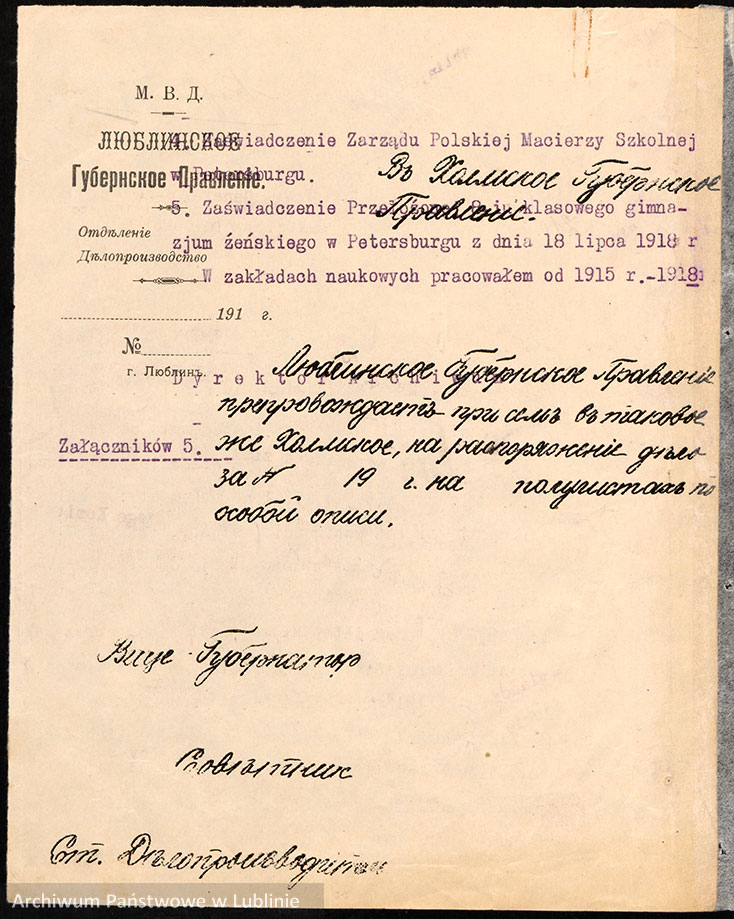 М. В. Д.
ЛЮБЛИНСКОЕ
Губернское Правленіе.
Отдѣленіе
Дѣлопроизводство
191 г.
№
г. Люблинъ.
4. Zaświadczenie Zarządu Polskiej Macierzy Szkolnej
w Petersburgu.
5. Zaświadczenie Przełożonej klasowego gimna-
zjum żeńskiego w Petersburgu z dnia 18 lipca 1918 r
W zakładach naukowych pracowałem od 1915 r.-1918
Dyrektor Archiwum
Załączników 5.
Въ Холмское Губернское
Правленіе.
Люблинское Губернское Правленіе
препровождаетъ при семъ въ таковое
же Холмское, на распоряженіе дѣло
за № 19 г. на полулистахъ по
особой описи.
Вице-Губернаторъ
Совѣтникъ
Ст. Дѣлопроизводитель
Archiwum Państwowe w Lublinie